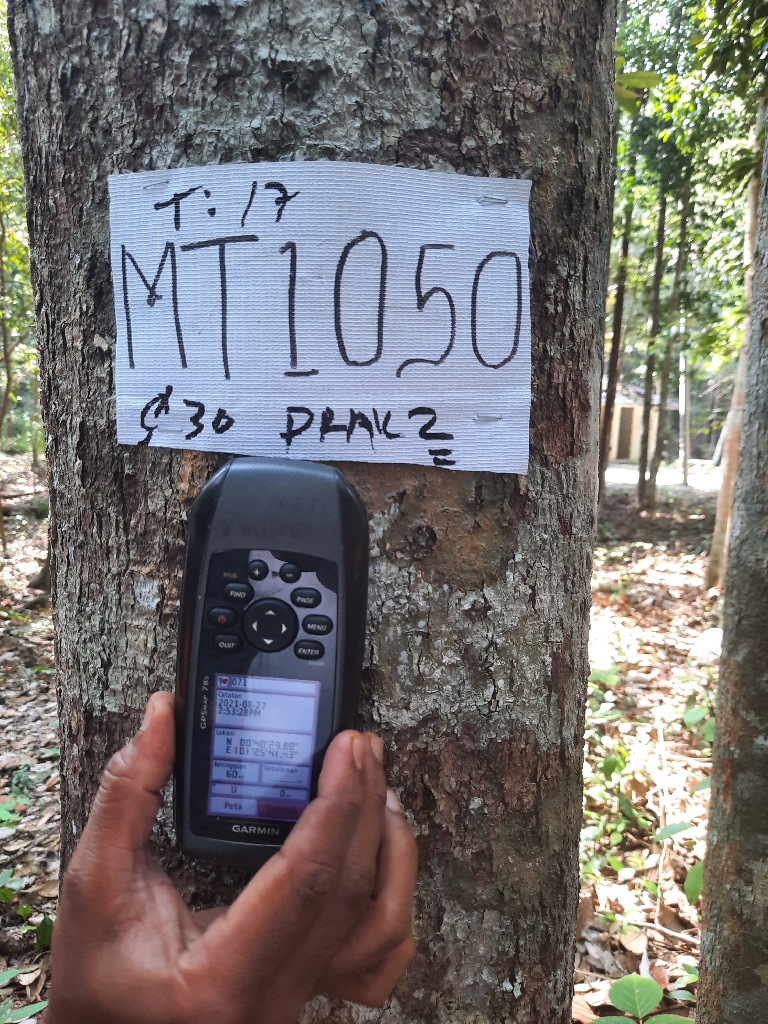 T: 17
MT1050
30
2
MOB
+
-
FIND
PAGE
MENU
QUIT
ENTER
GPSMAP 78s
071
Catatan
2021-08-27
2:53:28PM
Lokasi
N 00°40'29.88"
E 101°25'41.43"
Ketinggian
60m
U
0m
Peta
GARMIN